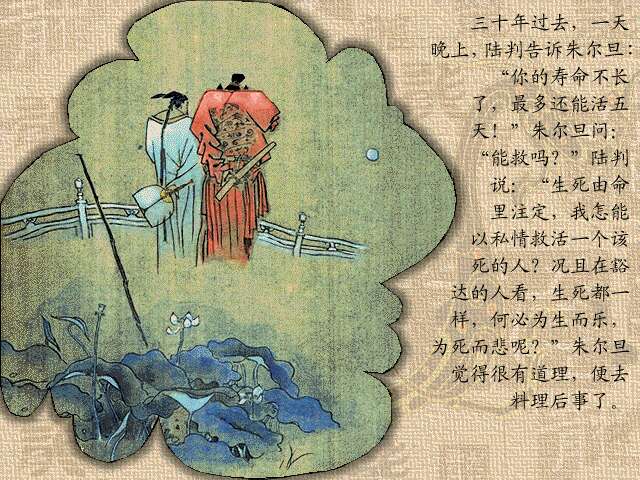 三十年过去，一天
晚上，陆判告诉朱尔旦：
“你的寿命不长
了，最多还能活五
天！”朱尔旦问：
“能救吗？”陆判
说：“生死由命
里注定，我怎能
以私情救活一个该
死的人？况且在豁
达的人看，生死都一
样，何必为生而乐，
为死而悲呢？”朱尔旦
觉得很有道理，便去
料理后事了。